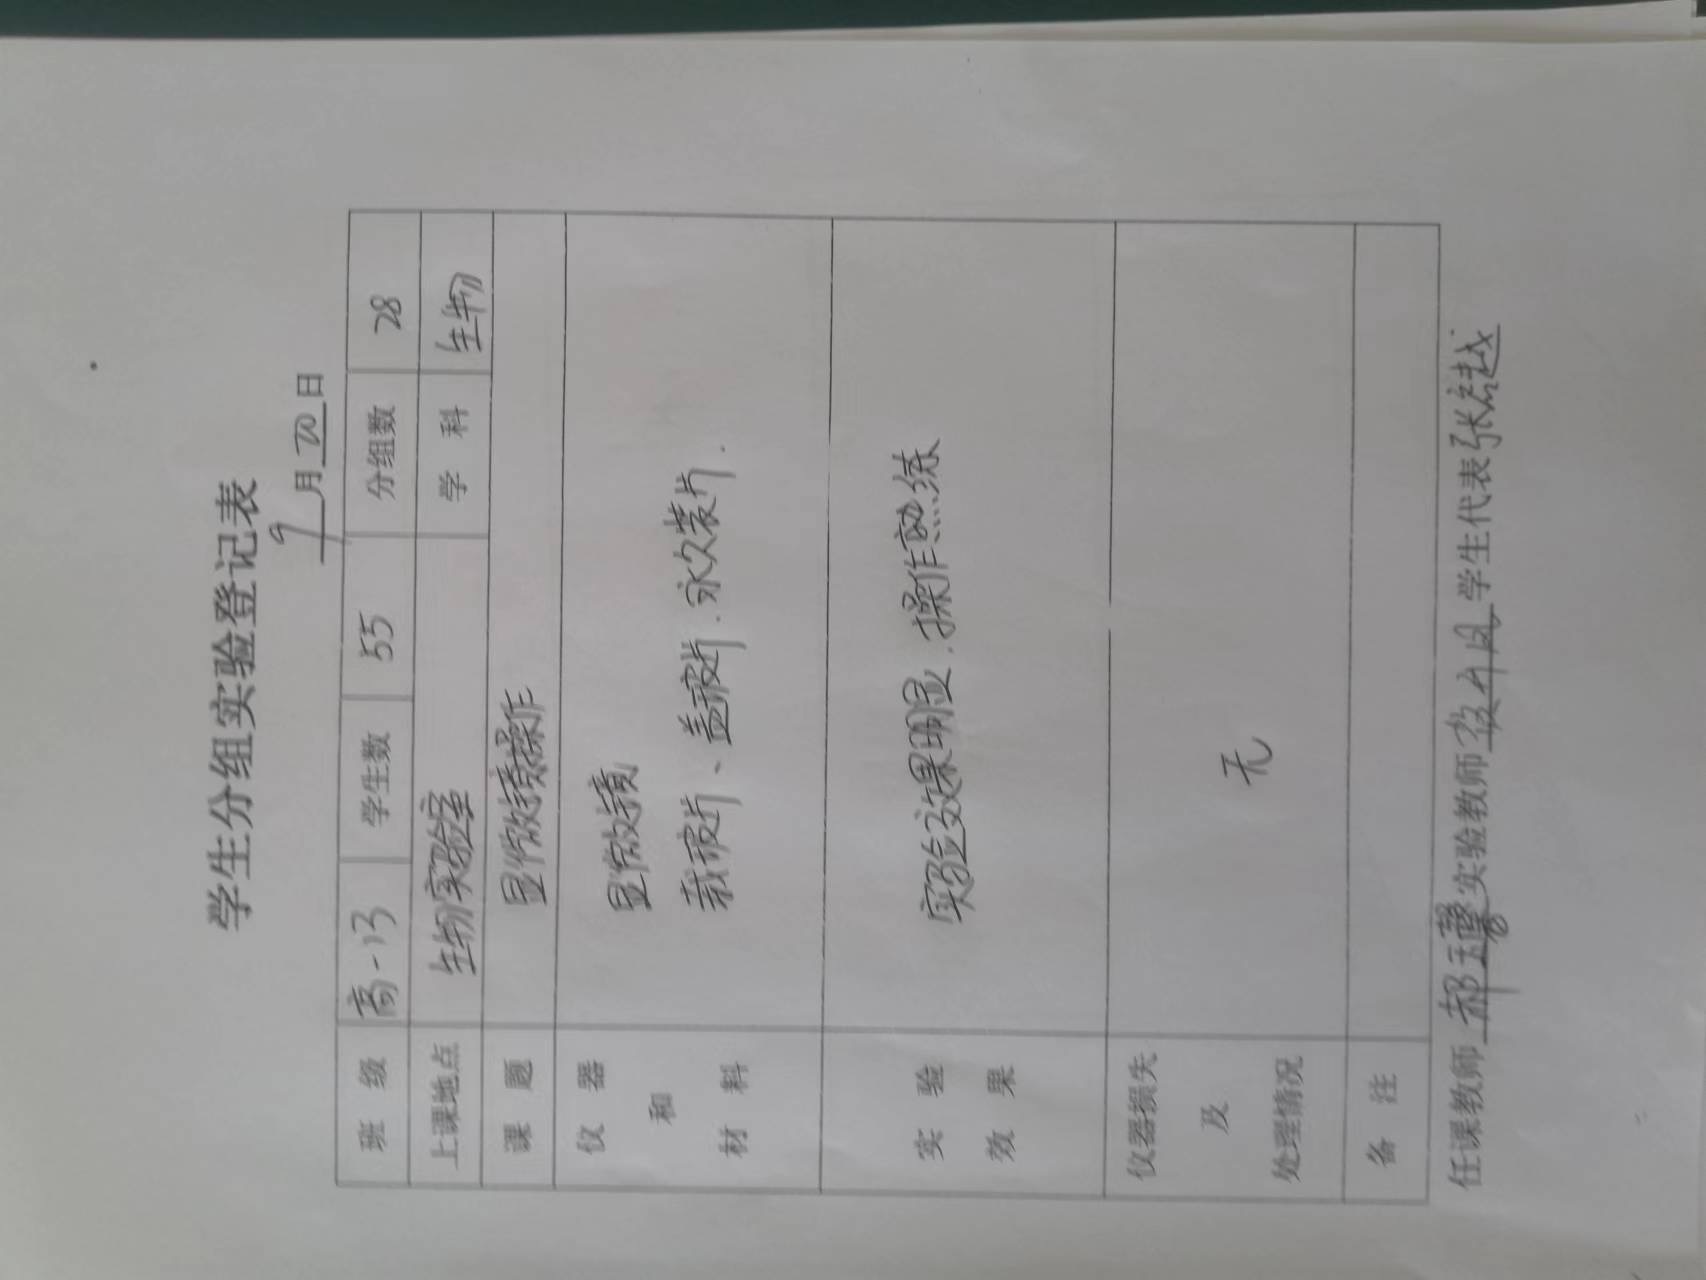 学生分组实验登记表
9月20日
班 级 高一13 学生数 55 分组数 28
上课地点 生物实验室 学 科 生物
课 题 显微镜操作
仪 器 和 材 料 显微镜
载玻片、盖玻片.永久装片.
实 验 效 果 实验效果明显.操作熟练
仪器损失及处理情况 无
备 注
任课教师 郝 实验教师 学生代表 张 越